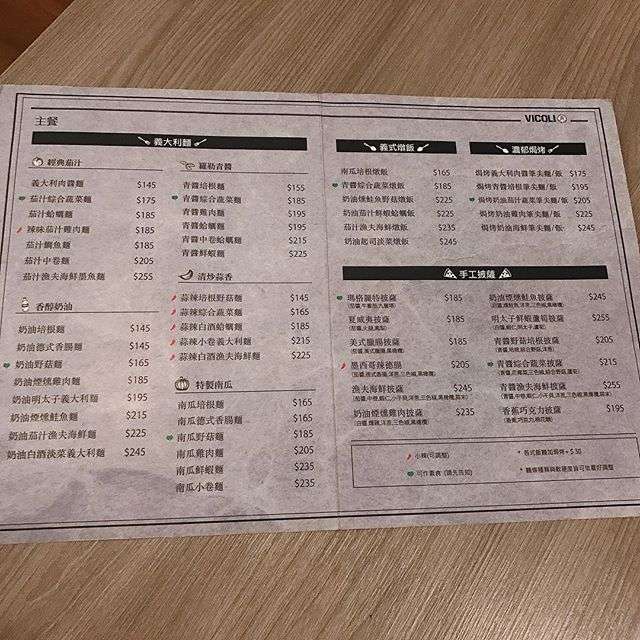 主餐
VICOLI
義大利麵
經典茄汁
義大利肉醬麵 $145
茄汁綜合蔬菜麵 $185
茄汁蛤蠣麵 $185
辣味茄汁雞肉麵 $185
茄汁鯛魚麵 $185
茄汁中卷麵 $205
茄汁漁夫海鮮墨魚麵 $255
香醇奶油
奶油培根麵 $145
奶油德式香腸麵 $145
奶油野菇麵 $165
奶油煙燻雞肉麵 $185
奶油明太子義大利麵 $195
奶油煙燻鮭魚麵 $215
奶油茄汁漁夫海鮮麵 $225
奶油白酒淡菜義大利麵 $245
羅勒青醬
青醬培根麵 $155
青醬綜合蔬菜麵 $185
青醬雞肉麵 $195
青醬蛤蠣麵 $195
青醬中卷蛤蠣麵 $215
青醬鮮蝦麵 $225
清炒蒜香
蒜辣培根野菇麵 $145
蒜辣綜合蔬菜麵 $165
蒜辣白酒蛤蠣麵 $185
蒜辣小卷義大利麵 $215
蒜辣白酒漁夫海鮮麵 $225
特製南瓜
南瓜培根麵 $165
南瓜德式香腸麵 $165
南瓜野菇麵 $185
南瓜雞肉麵 $205
南瓜鮮蝦麵 $235
南瓜小卷麵 $235
義式燉飯
南瓜培根燉飯 $165
青醬綜合蔬菜燉飯 $185
奶油燻鮭魚野菇燉飯 $225
奶油茄汁鮮蝦蛤蠣燉飯 $225
茄汁漁夫海鮮燉飯 $235
奶油起司淡菜燉飯 $245
濃郁焗烤
焗烤義大利肉醬筆夫麵/飯 $175
焗烤青醬培根筆夫麵/飯 $195
焗烤奶油茄汁蔬菜筆夫麵/飯 $205
焗烤奶油雞肉筆夫麵/飯 $215
焗烤奶油海鮮筆夫麵/飯 $245
手工披薩
瑪格麗特披薩 $185
夏威夷披薩 $185
美式臘腸披薩 $185
墨西哥辣德腸 $205
漁夫海鮮披薩 $245
奶油煙燻雞肉披薩 $235
奶油煙燻鮭魚披薩 $245
明太子鮮蝦蘆筍披薩 $255
青醬野菇培根披薩 $195
青醬綜合蔬菜披薩 $215
青醬漁夫海鮮披薩 $255
香蕉巧克力披薩 $195
小辣(可調整)
* 各式飯麵加焗烤+$30
可作素食 (請先告知)